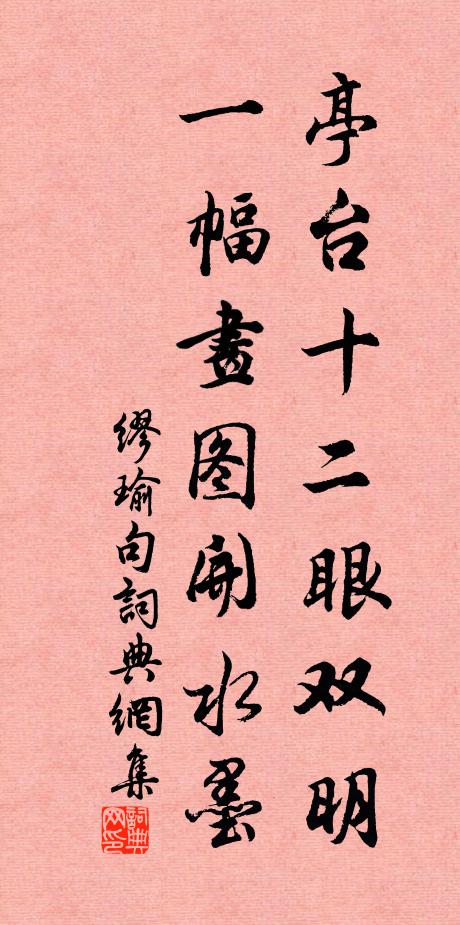 亭台十二眼双明
一幅畫图開水墨
繆瑜句詞典網集
詞典
网印